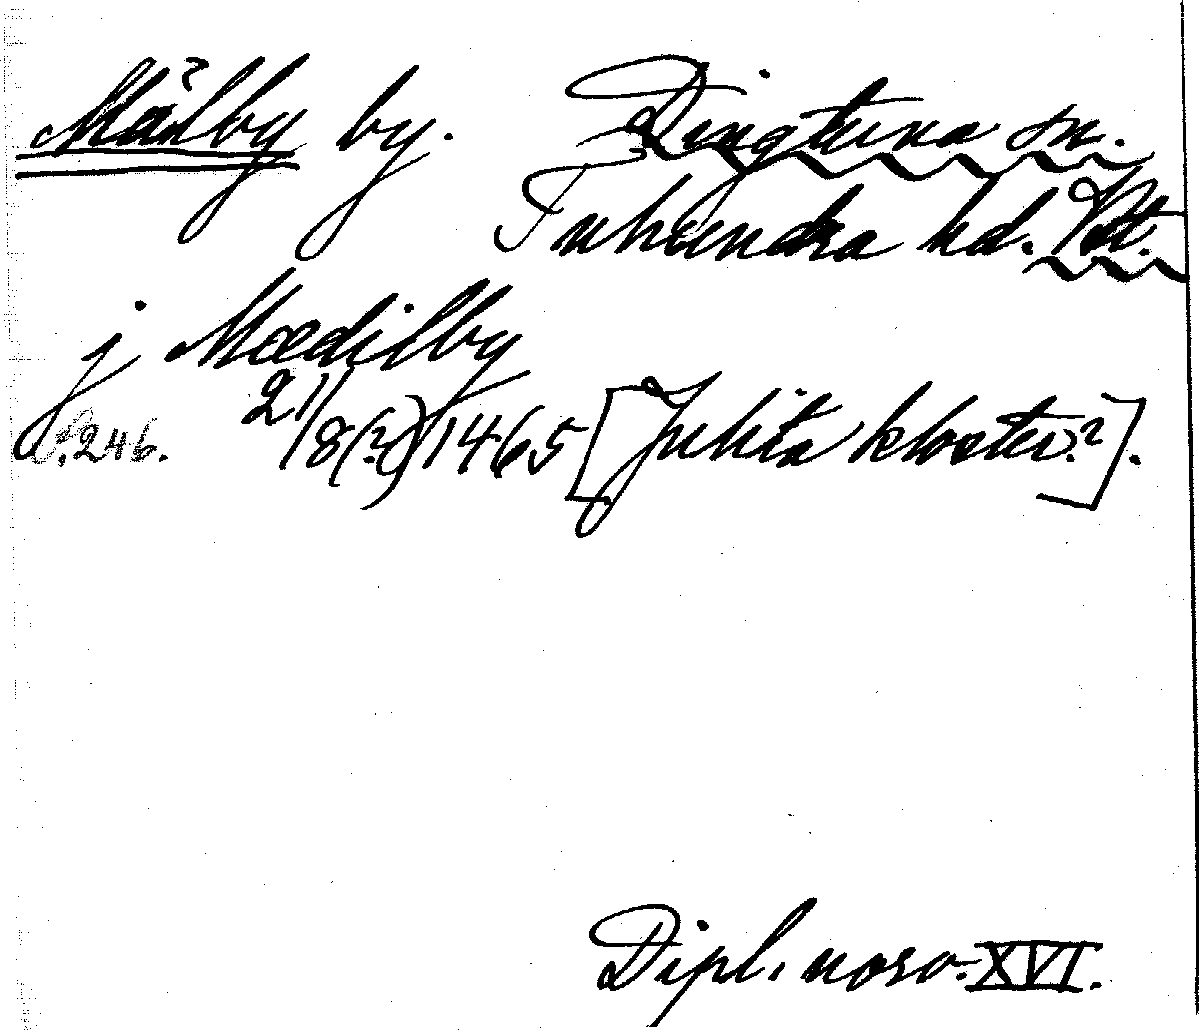 Mälby by. Dingtuna sn.
Tuhundra hd. Vstm.
j Mædilby
S. 246. 21/8(?) 1465 [Julita kloster?].
Dipl. norv. XVI.